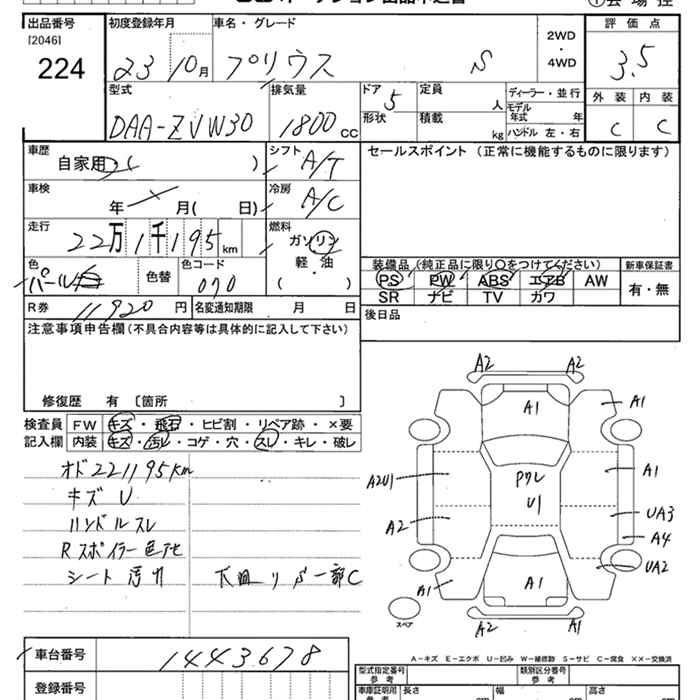 出品番号 初度登録年月 車名・グレード 評価点
[2046]
224 23 10月 プリウス S 2WD・4WD 3.5
型式 排気量 ドア 5 定員 人 ディーラー・並行 外装 内装
DAA-ZVW30 1800 CC 形状 積載 kg モデル年式 年 C C
ハンドル 左・右
車歴 自家用・( ) シフト A/T セールスポイント (正常に機能するものに限ります)
車検 年 月( 日) 冷房 A/C
走行 22万1千195 km 燃料 ガソリン
軽・油
( )
色 パール白 色替 色コード 070
装備品 (純正品に限り○をつけてください) 新車保証書
PS PW ABS エアB AW 有・無
SR ナビ TV カワ
R券 11920 円 名変通知期限 月 日
後日品
注意事項申告欄 (不具合内容等は具体的に記入して下さい)
修復歴 有 〔箇所 〕
検査員 FW キズ・飛石・ヒビ割・リペア跡・×要
記入欄 内装 キズ・汚レ・コゲ・穴・スレ・キレ・破レ
オド221195km
キズ U
ハンドルスレ
Rスポイラー色アセ
シート汚れ 下回りS一部C
A2 A2
A1 A1
A2U1 PクレU1 A1
A2 UA3
A4
UA2
A1 A1
A2 A1
スペア
車台番号 1443678
登録番号
A-キズ E-エクボ U-凹み W-補修跡 S-サビ C-腐食 ××-交換済
型式指定番号 類別区分番号
参考 参考
車庫証明用 長さ 幅 高さ